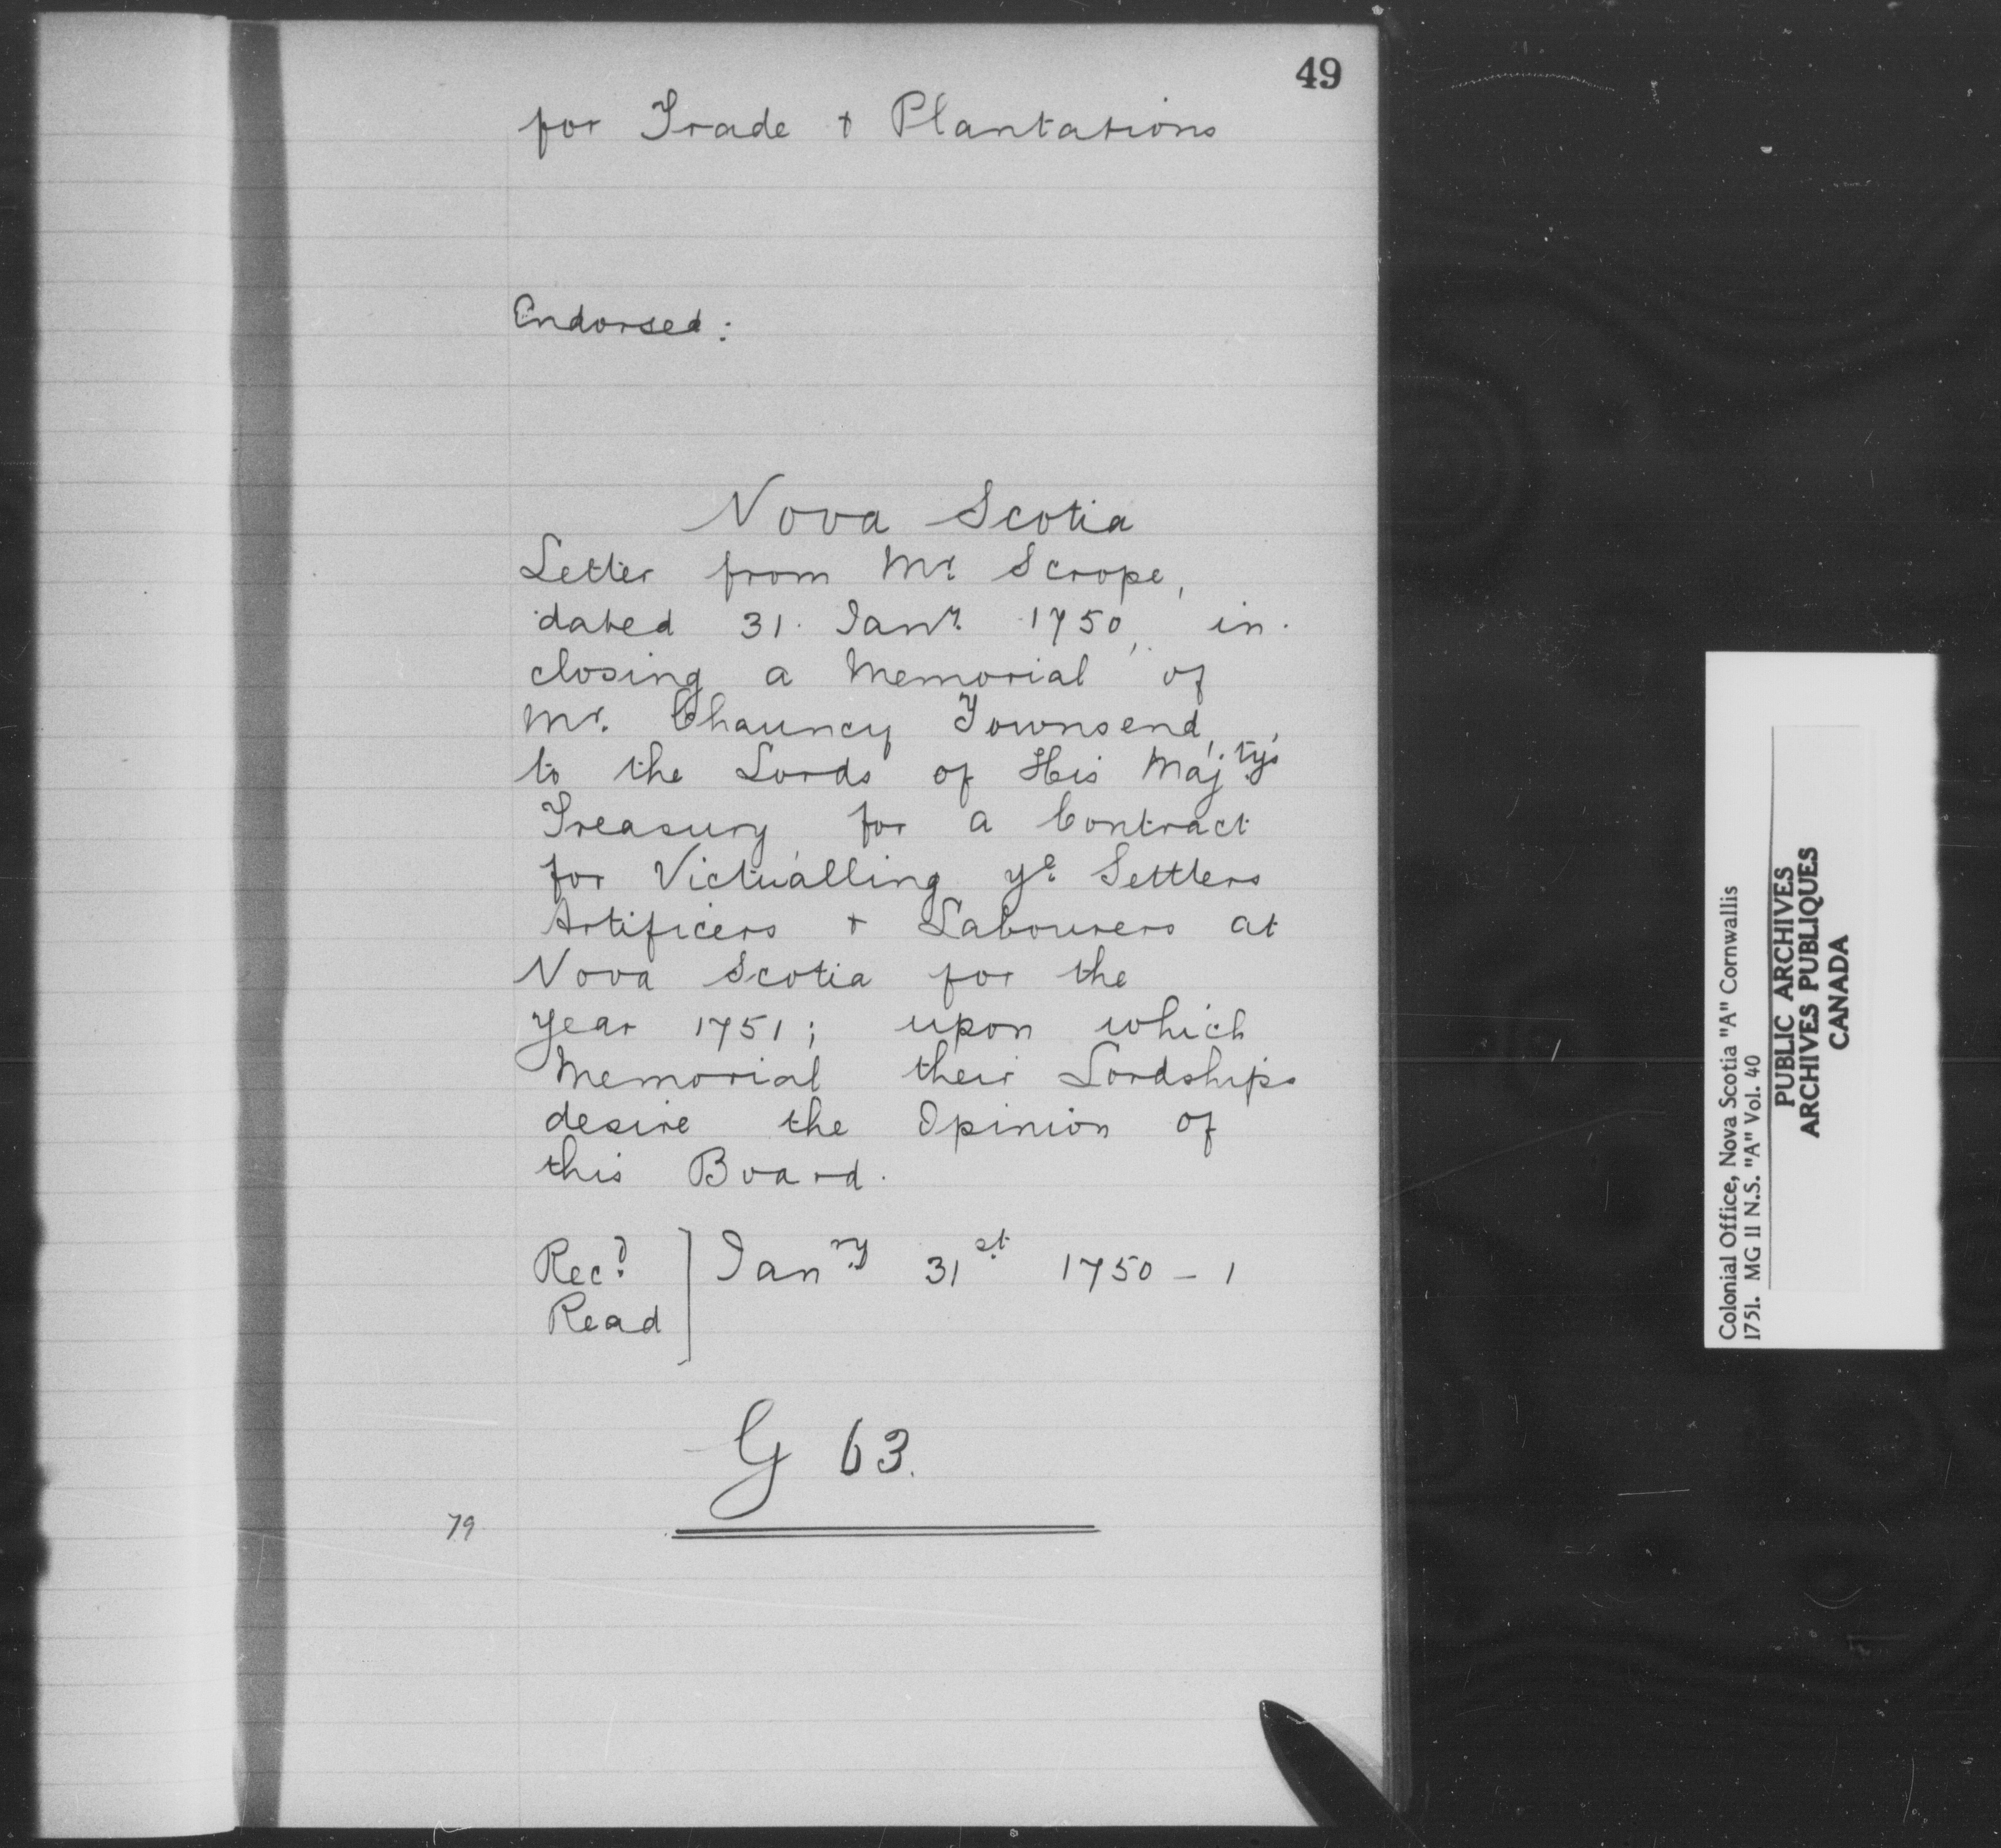 49
for Trade & Plantations
Endorsed:
Nova Scotia
Letter from Mr. Scrope,
dated 31. Janry. 1750, in-
closing a Memorial of
Mr. Chauncy Townsend,
to the Lords of His Maj'tys
Treasury, for a Contract
for Victualling ye Settlers
Artificers & Labourers at
Nova Scotia for the
year 1751; upon which
Memorial their Lordships
desire the Opinion of
this Board.
Recd. ] Janry 31st 1750-1
Read
G 63.
79
Colonial Office, Nova Scotia "A" Cornwallis
1751. MG 11 N.S. "A" Vol. 40
PUBLIC ARCHIVES
ARCHIVES PUBLIQUES
CANADA